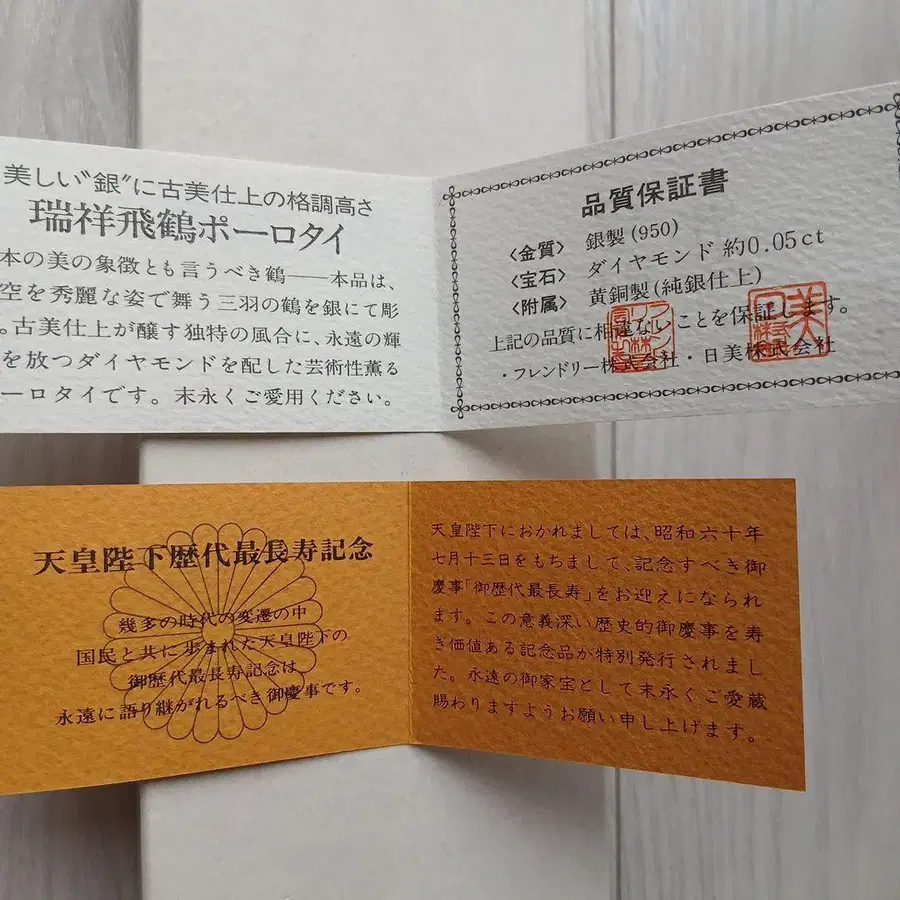 美しい"銀"に古美仕上の格調高さ
瑞祥飛鶴ポーロタイ
本の美の象徴とも言うべき鶴――本品は、
空を秀麗な姿で舞う三羽の鶴を銀にて彫
。古美仕上が醸す独特の風合に、永遠の輝
を放つダイヤモンドを配した芸術性薫る
ーロタイです。末永くご愛用ください。
品質保証書
〈金質〉 銀製(950)
〈宝石〉 ダイヤモンド 約0.05ct
〈附属〉 黄銅製(純銀仕上)
上記の品質に相違ないことを保証します。
・フレンドリー株式会社・日美株式会社
天皇陛下歴代最長寿記念
幾多の時代の変遷の中
国民と共に歩まれた天皇陛下の
御歴代最長寿記念は
永遠に語り継がれるべき御慶事です。
天皇陛下におかれましては、昭和六十年
七月十三日をもちまして、記念すべき御
慶事「御歴代最長寿」をお迎えになられ
ます。この意義深い歴史的御慶事を寿
ぎ価値ある記念品が特別発行されまし
た。永遠の御家宝として末永くご愛蔵
賜わりますようお願い申し上げます。